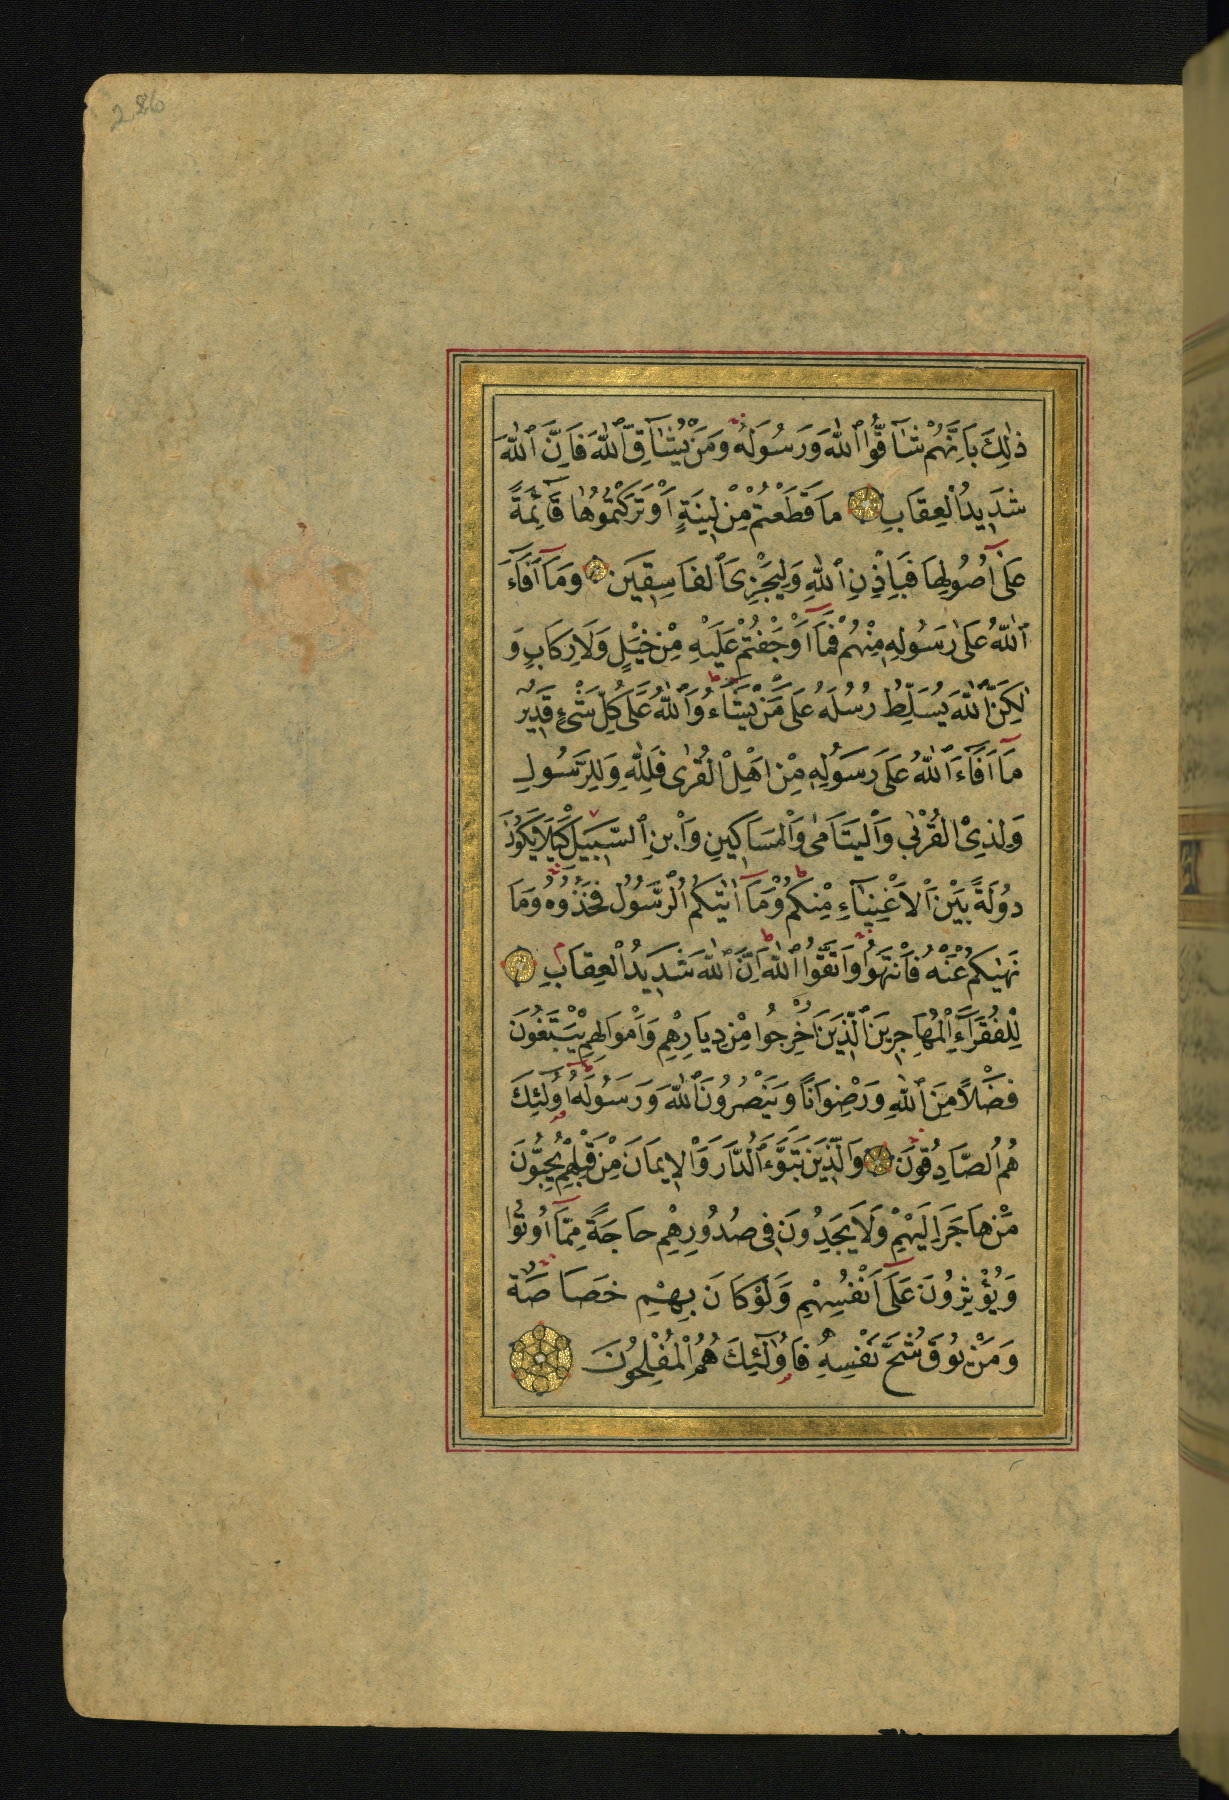 286
ذٰلِكَ بِاَنَّهُمْ شَآقُّوا اللّٰهَ وَرَسُولَهُ وَمَنْ يُشَآقِّ اللّٰهَ فَاِنَّ اللّٰهَ
شَدِيدُ الْعِقَابِ مَا قَطَعْتُمْ مِنْ لِينَةٍ اَوْ تَرَكْتُمُوهَا قَآئِمَةً
عَلٰى اُصُولِهَا فَبِاِذْنِ اللّٰهِ وَلِيُخْزِىَ الفَاسِقِينَ وَمَآ اَفَآءَ
اللّٰهُ عَلٰى رَسُولِهِ مِنْهُمْ فَمَآ اَوْجَفْتُمْ عَلَيْهِ مِنْ خَيْلٍ وَلَا رِكَابٍ وَ
لٰكِنَّ اللّٰهَ يُسَلِّطُ رُسُلَهُ عَلٰى مَنْ يَشَآءُ وَاللّٰهُ عَلٰى كُلِّ شَىْءٍ قَدِيرٌ
مَآ اَفَآءَ اللّٰهُ عَلٰى رَسُولِهِ مِنْ اَهْلِ الْقُرٰى فَلِلّٰهِ وَلِلرَّسُولِ
وَلِذِى الْقُرْبٰى وَالْيَتَامٰى وَالْمَسَاكِينِ وَابْنِ السَّبِيلِ كَيْلَا يَكُونَ
دُولَةً بَيْنَ الْاَغْنِيَآءِ مِنْكُمْ وَمَآ اٰتٰيكُمُ الرَّسُولُ فَخُذُوهُ وَمَا
نَهٰيكُمْ عَنْهُ فَانْتَهُوا وَاتَّقُوا اللّٰهَ اِنَّ اللّٰهَ شَدِيدُ الْعِقَابِ
لِلْفُقَرَآءِ الْمُهَاجِرِينَ الَّذِينَ اُخْرِجُوا مِنْ دِيَارِهِمْ وَاَمْوَالِهِمْ يَبْتَغُونَ
فَضْلًا مِنَ اللّٰهِ وَرِضْوَانًا وَيَنْصُرُونَ اللّٰهَ وَرَسُولَهُ اُولٰئِكَ
هُمُ الصَّادِقُونَ وَالَّذِينَ تَبَوَّءُ الدَّارَ وَالْاِيمَانَ مِنْ قَبْلِهِمْ يُحِبُّونَ
مَنْ هَاجَرَ اِلَيْهِمْ وَلَا يَجِدُونَ فِى صُدُورِهِمْ حَاجَةً مِمَّآ اُوتُوا
وَيُؤْثِرُونَ عَلٰى اَنْفُسِهِمْ وَلَوْ كَانَ بِهِمْ خَصَاصَةٌ
وَمَنْ يُوقَ شُحَّ نَفْسِهِ فَاُولٰئِكَ هُمُ الْمُفْلِحُونَ